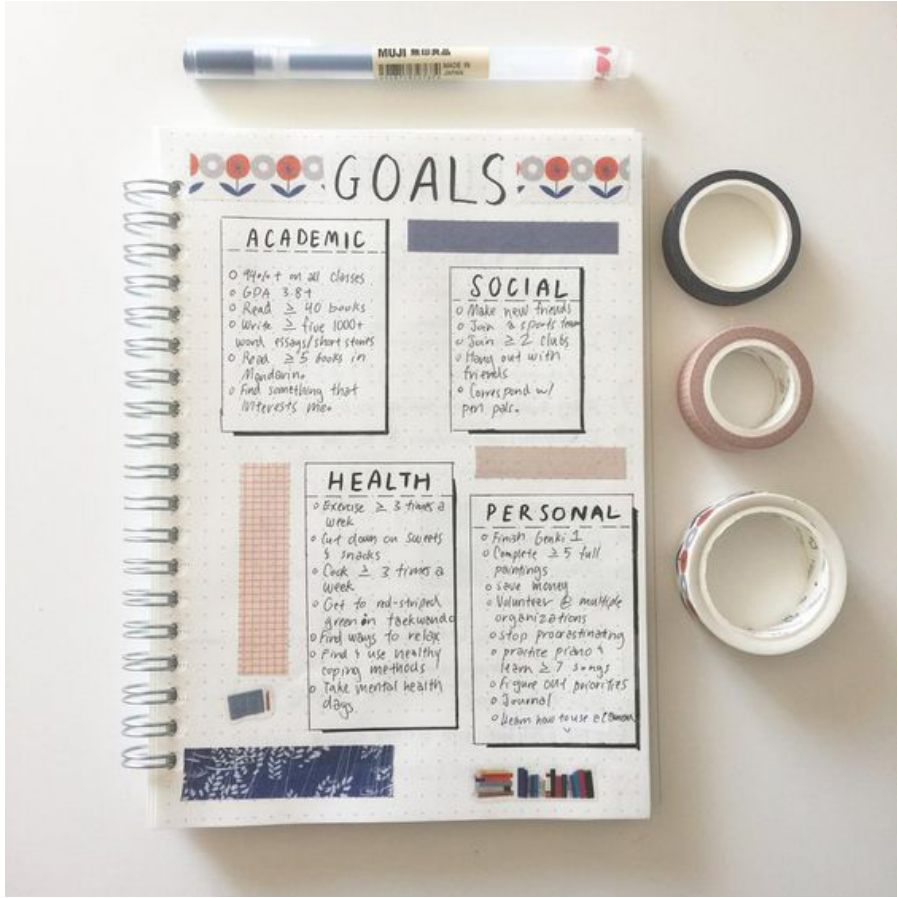 MUJI 無印良品
MADE IN
JAPAN
GOALS
ACADEMIC
94%+ on all classes
GPA 3.8+
Read ≥ 40 books
Write ≥ five 1000+
word essays/short stories
Read ≥5 books in
Mandarin.
Find something that
interests me.
SOCIAL
Make new friends
Join a sports team
Join ≥ 2 clubs
Hang out with
friends
Correspond w/
pen pals.
HEALTH
Exercise ≥ 3 times a
week
Cut down on sweets
& snacks
Cook ≥ 3 times a
week
Get to red-striped
green in taekwondo
Find ways to relax
Find & use healthy
coping methods
Take mental health
days.
PERSONAL
Finish Genki 1
Complete ≥ 5 full
paintings
save money
Volunteer @ multiple
organizations
stop procrastinating
practice piano &
learn ≥ 7 songs
Figure out priorities
Journal
Learn how to use a